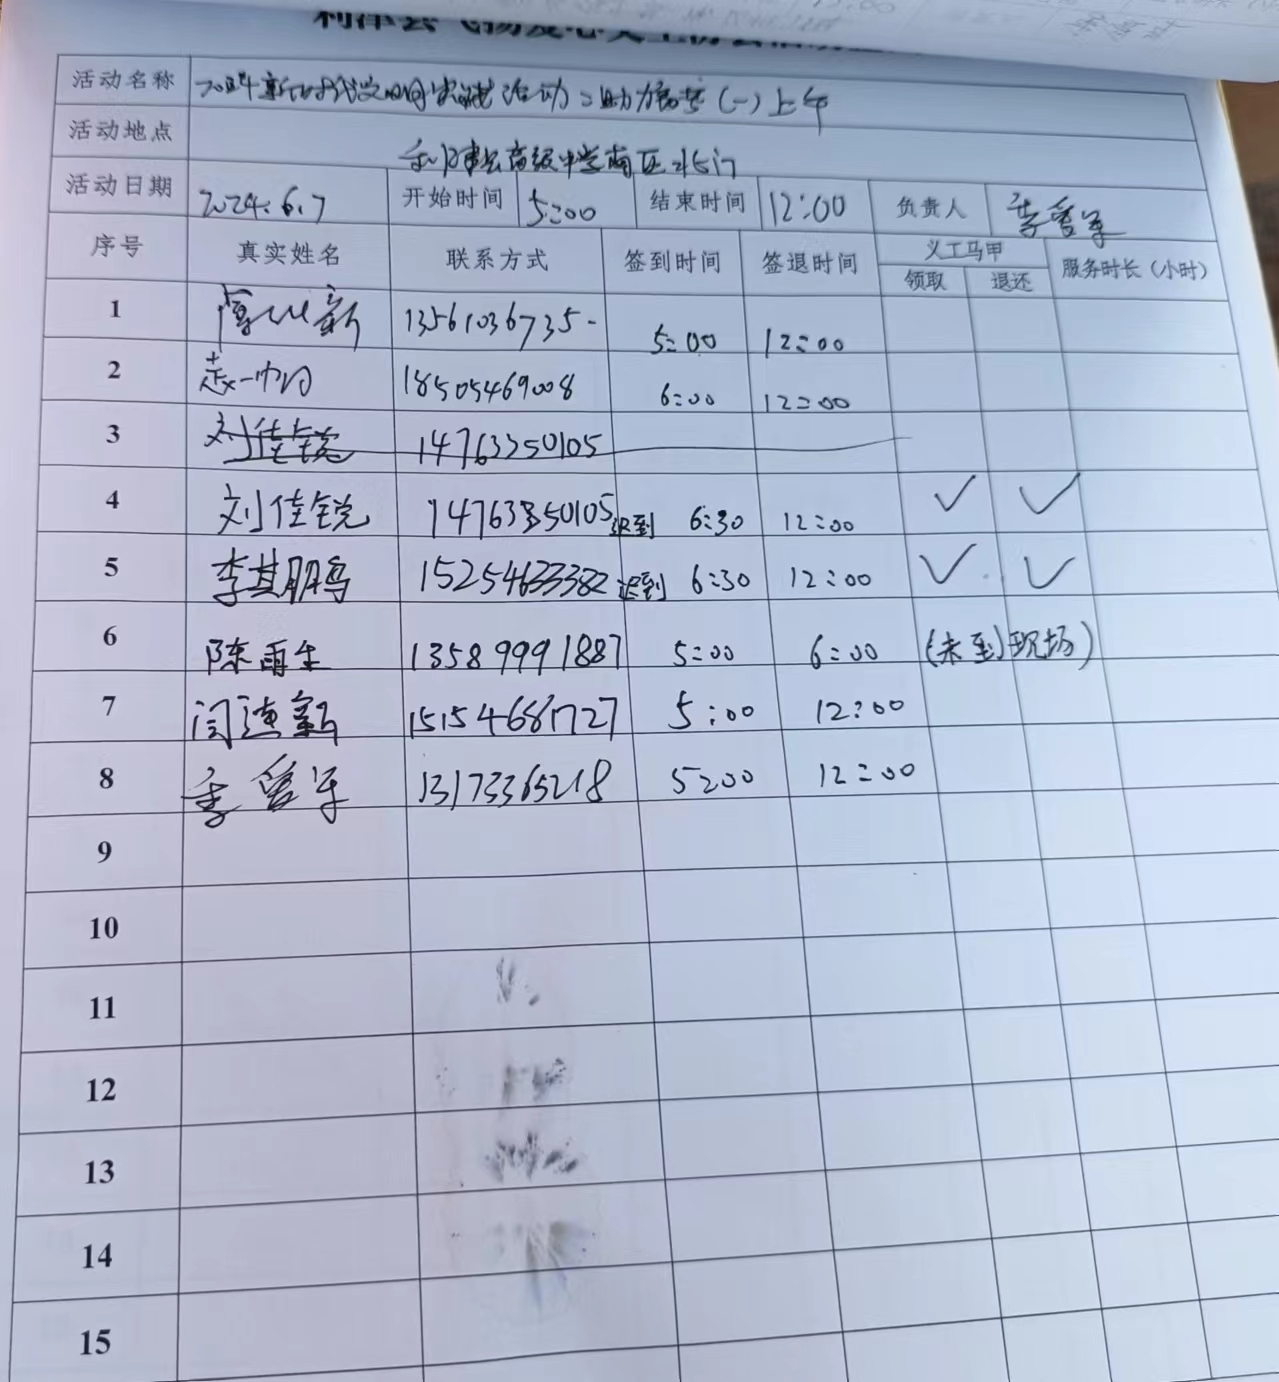 活动名称 2024年新时代文明实践活动:助力高考(一)上午
活动地点 利津县高级中学南区北门
活动日期 2024.6.7 开始时间 5:00 结束时间 12:00 负责人
序号 真实姓名 联系方式 签到时间 签退时间 义工马甲 服务时长(小时)
领取 退还
1 13561036735 5:00 12:00
2 18505469008 6:00 12:00
3 刘佳锐 14763350105
4 刘佳锐 14763350105 迟到 6:30 12:00 ✓ ✓
5 李其鹏 15254633382 迟到 6:30 12:00 ✓ ✓
6 陈雨生 13589991887 5:00 6:00 (未到现场)
7 15154681727 5:00 12:00
8 13173365218 5:00 12:00
9
10
11
12
13
14
15